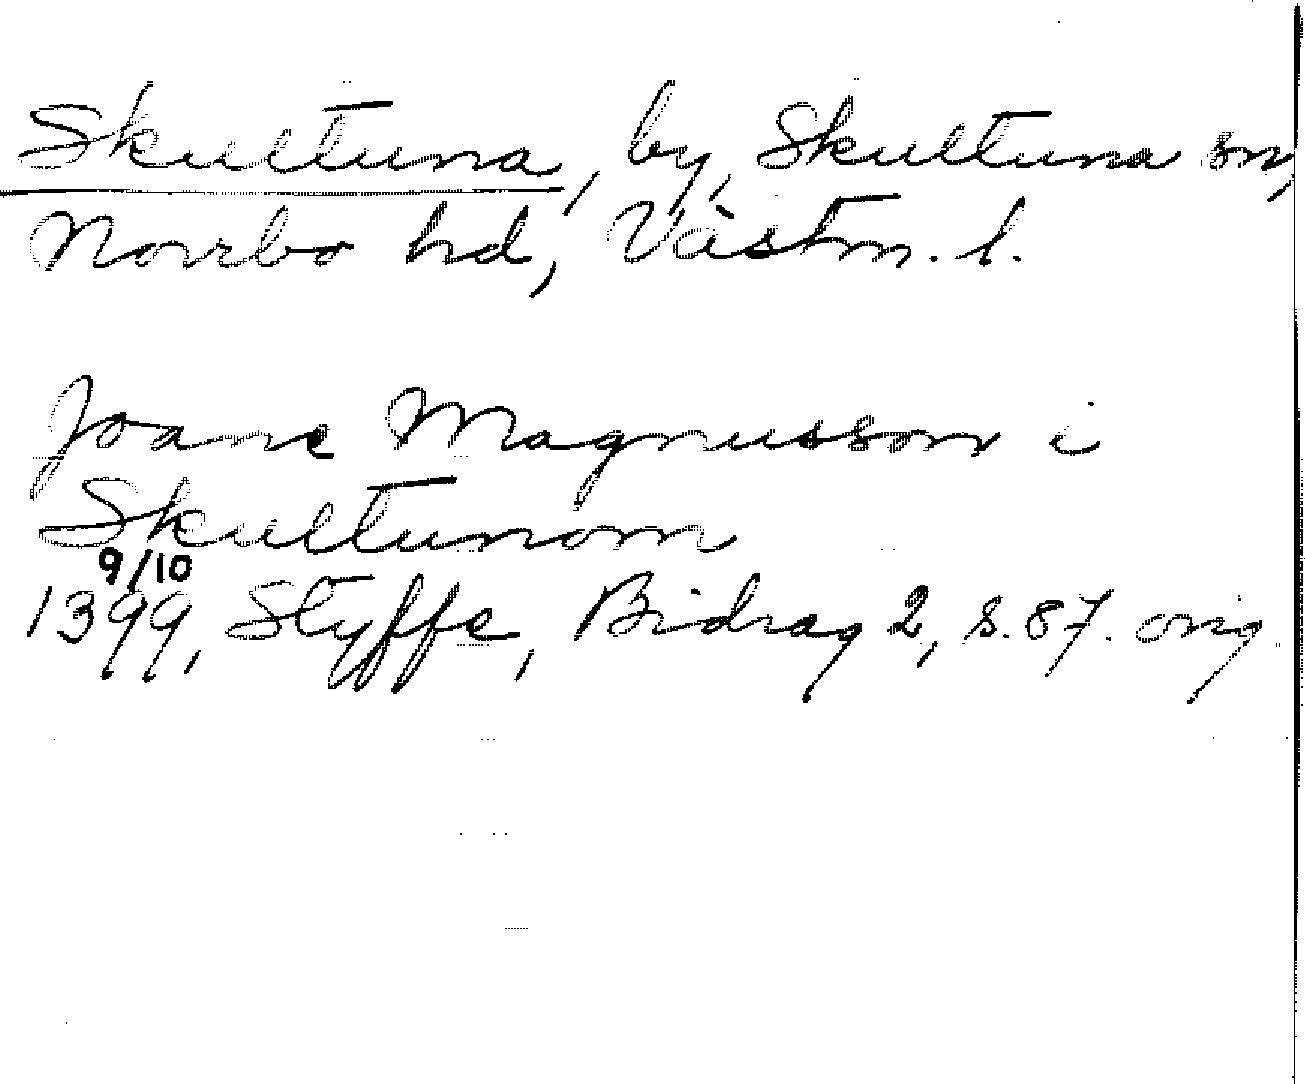 Skultuna, by, Skultuna sn,
Norrbo hd, Västm. l.
Joane Magnusson i
Skultunom
9/10
1399, Styffe, Bidrag 2, s. 87. orig.